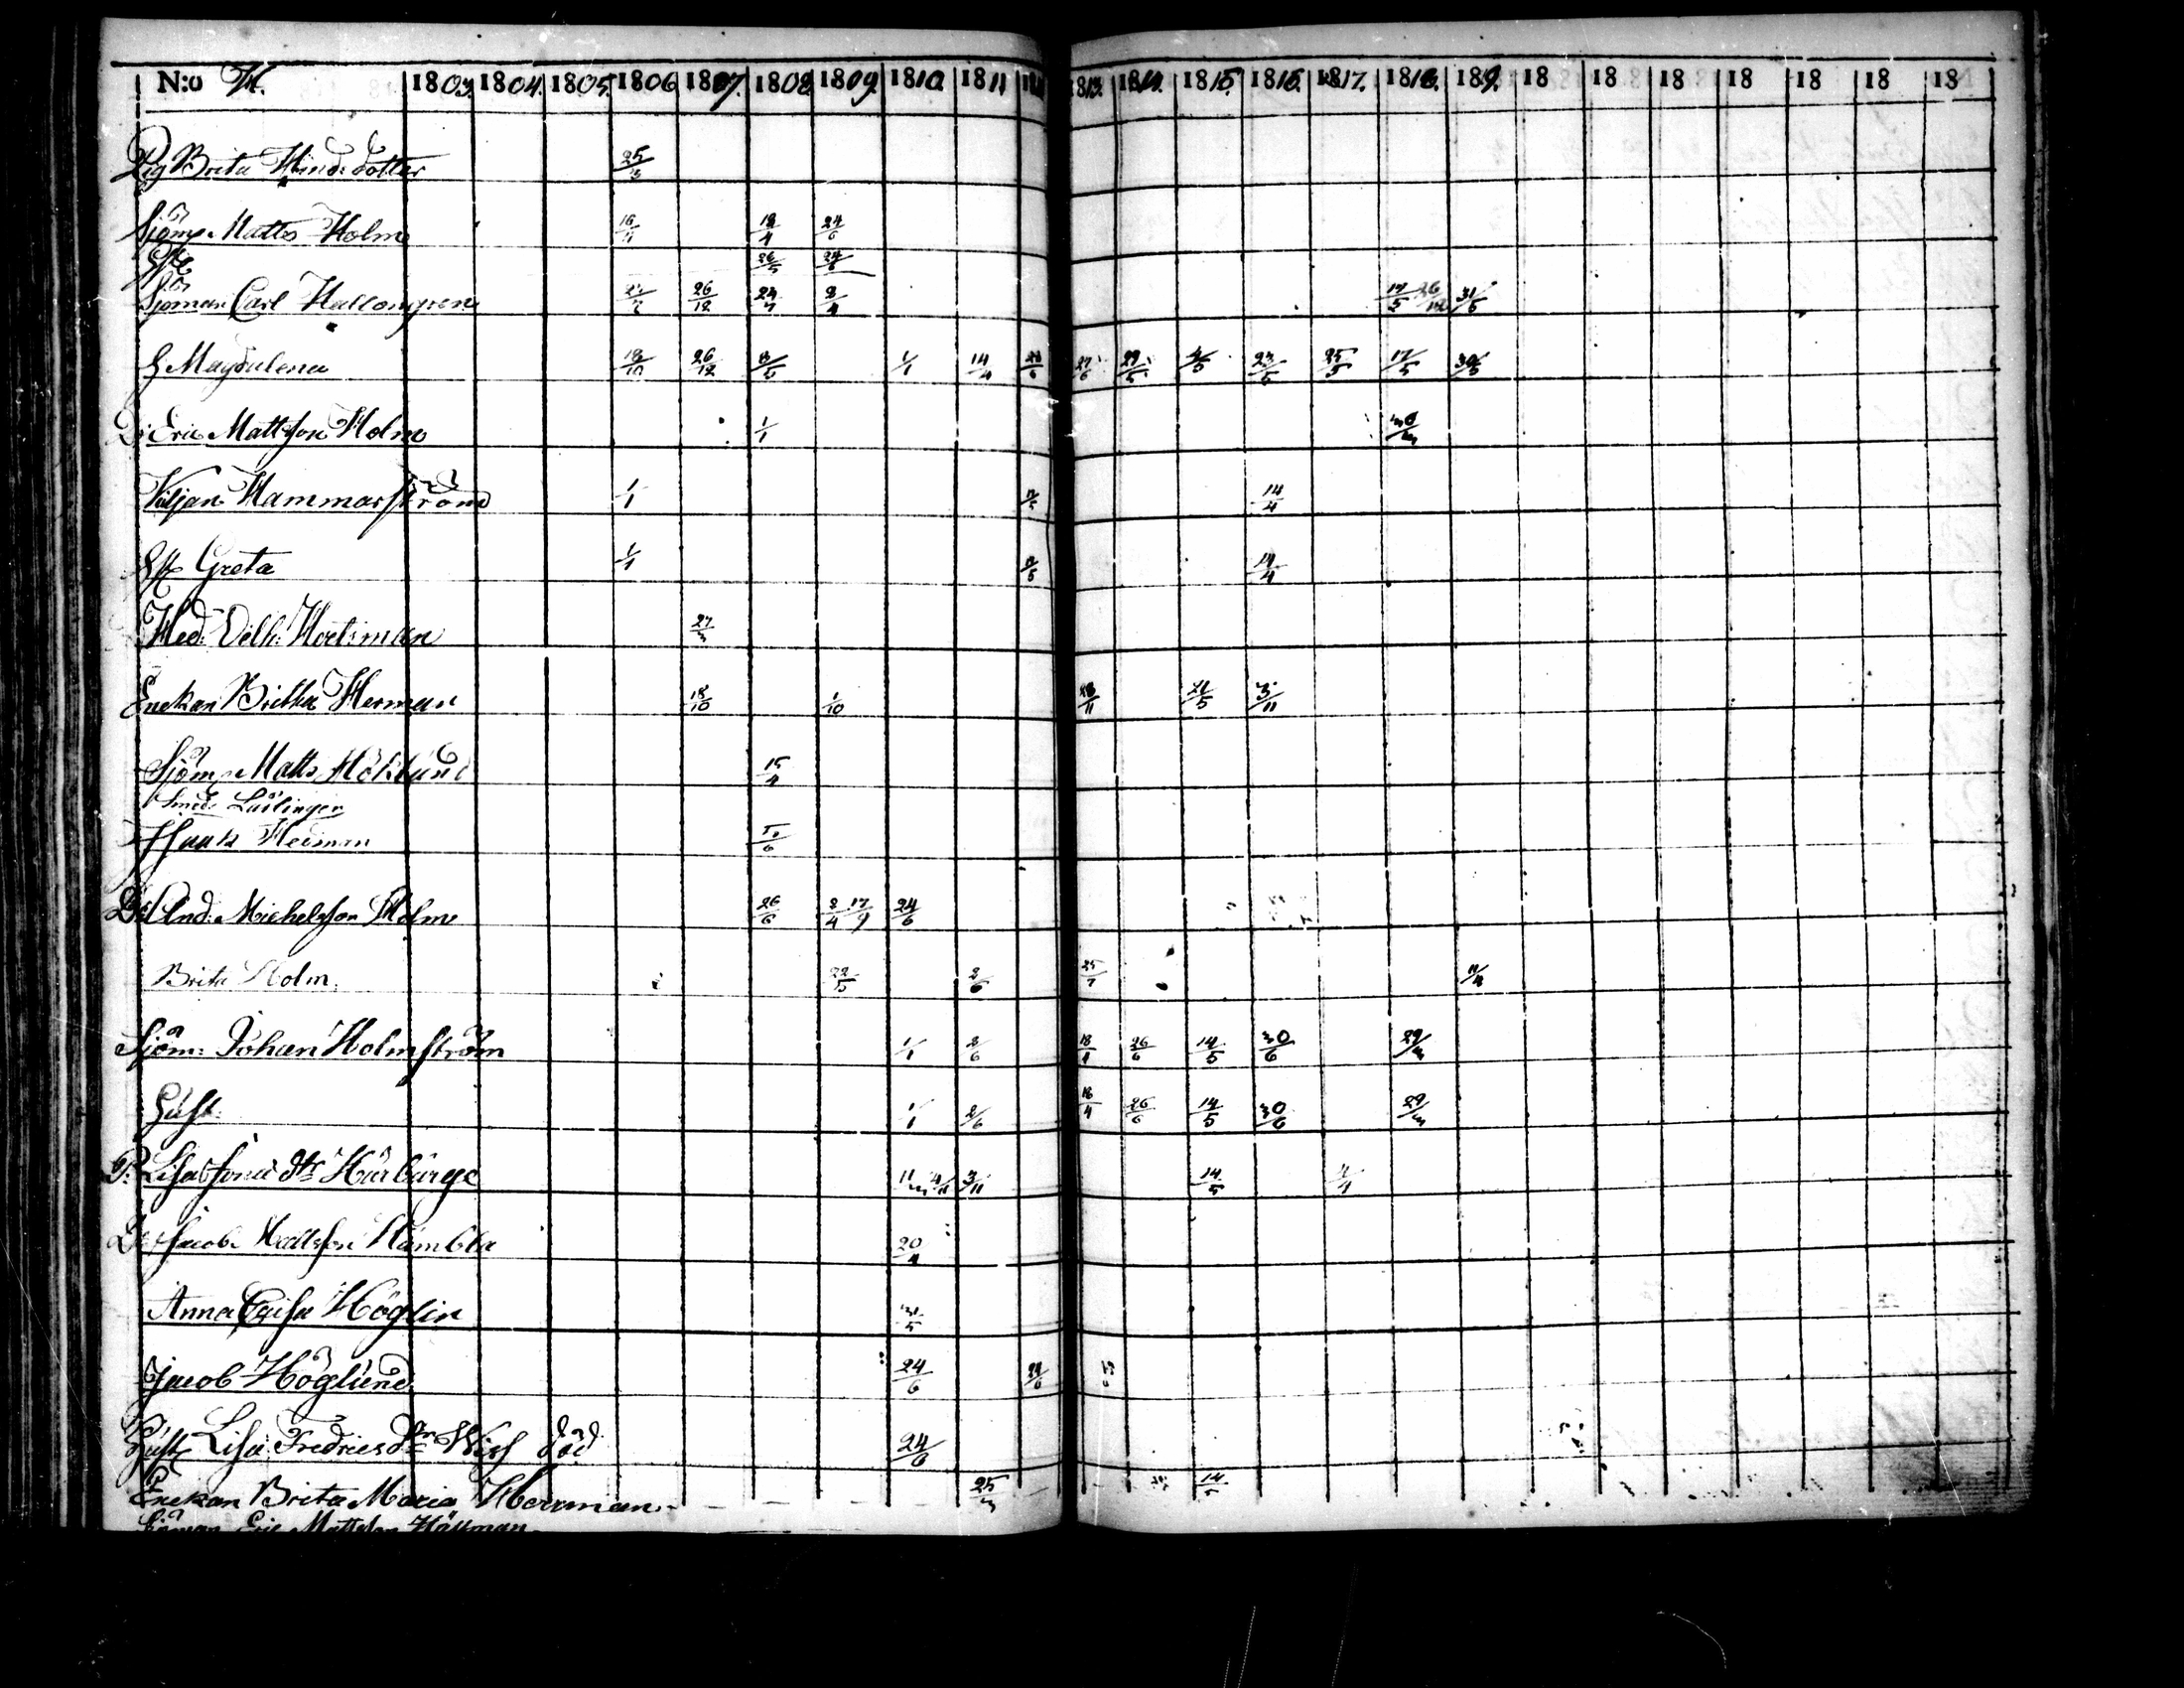 N:o H. 1803. 1804. 1805. 1806 1807. 1808 1809. 1810 1811 1813. 1814. 1815. 1816. 1817. 1818. 189. 18 18 18 18 18 18 18
Pig Brita Hind: dotter 25/3
Sjöm. Matts Holm 16/4 18/4 24/6
26/5 24/6
Sjöman Carl Hallongren 26/12 24/7 2/4 17/5 26/12 31/5
H Magdulena 18/10 26/12 1/1 14/4 27/6 29/5 23/5 25/5 17/5 30/5
Dr Eric Mattsson Holm 1/1 30/3
Viljan Hammarström 1/1 14/4
Greta 1/1 14/4
Hed: Vilh: Hortsman 27/3
Enckan Britha Herman 18/10 1/10 28/11 21/5 3/11
Sjöm Matts Höklund 15/4
Smeds Lärlingen
Isaak Hedman
Dr And: Michelsson Holm 26/6 2/4 17/9 24/6
Brita Holm. 22/5 2/6 25/7
Sjöm: Johan Holmström 1/1 2/6 18/4 26/6 14/5 30/6 29/3
Hust. 1/1 2/6 18/4 26/6 14/5 30/6 29/3
P. Lisa dtr Hürbürge 3/11 14/5
Dr Jacob Mattsson Hambla 20/4
Anna Caisa Höglin
Jacob Höglund 24/6
Hust Lisa Fredricsdtr död 24/6
Enckan Brita Maria Herrman. 25/3 14/5
Sjöman Eric Mattsson